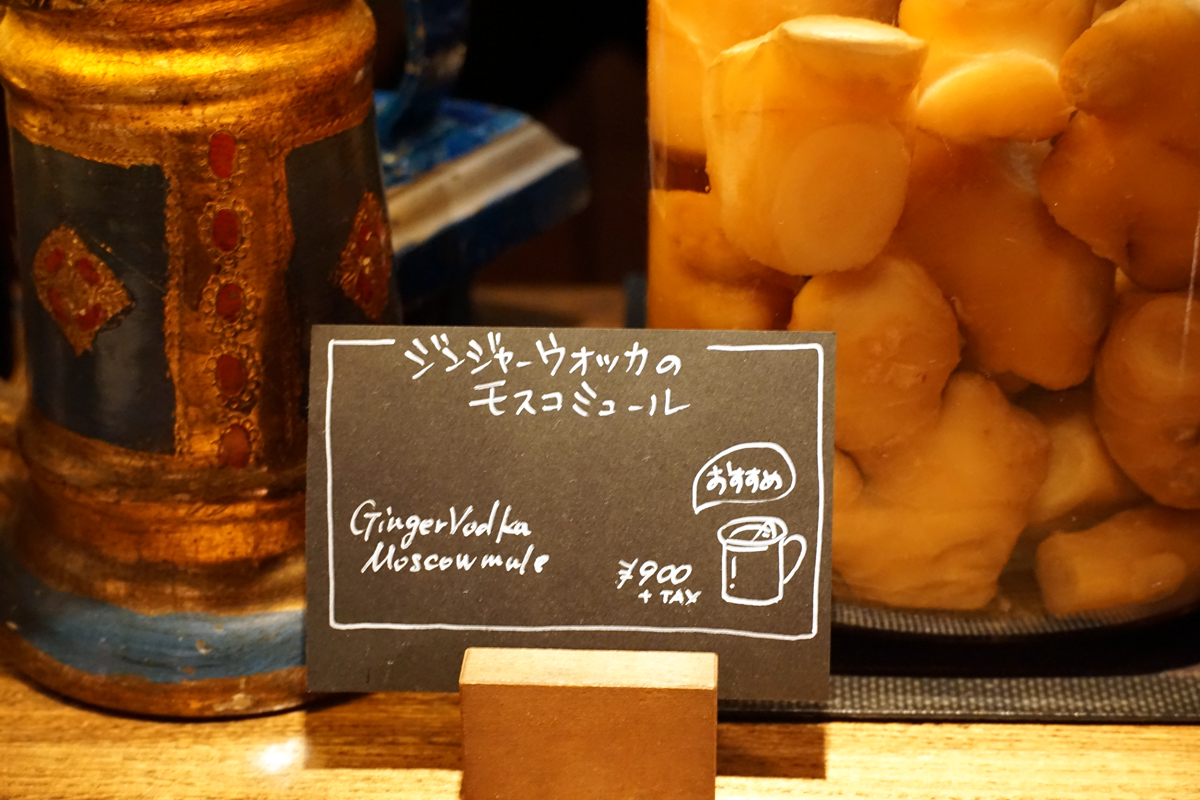 ジンジャーウオッカの
モスコミュール
おすすめ
GingerVodka
Moscowmule
¥900
+ TAX